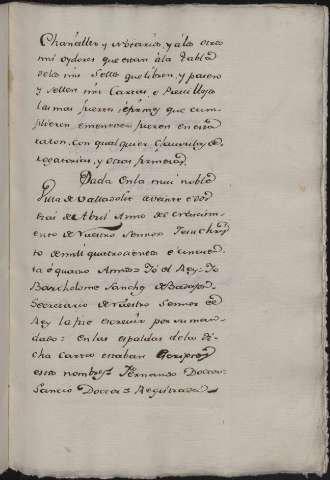 Chanziller, y Notarios, y à los otros
mis oydores que estan à la tabla
de los mis Sellos que libren, y pasen
y sellen mis Cartas, e
las mas fueren è firmes que cum-
plieren, e menester fueren en esta
razon, con qualquier Clausulas de-
rogatorias, y otras firmezas
Dada en la mui noble
Villa de Valladolid à veinte e dos
dias de Abril Anno del Nacimi-
ento de Nuestro Sennor Jesuchrto
de mill quatrocientos è cincuen-
ta è quatro Annos = Yo el Rey = Yo
Bartholome Sanchez de Badajoz
Secretario de Nuestro Sennor el
Rey la fize escrevir por su man-
dado = En las espaldas de la di-
cha Carta estaban Escriptos
estos nombres Fernandus Doctor =
Sancio Doctor = Registrada